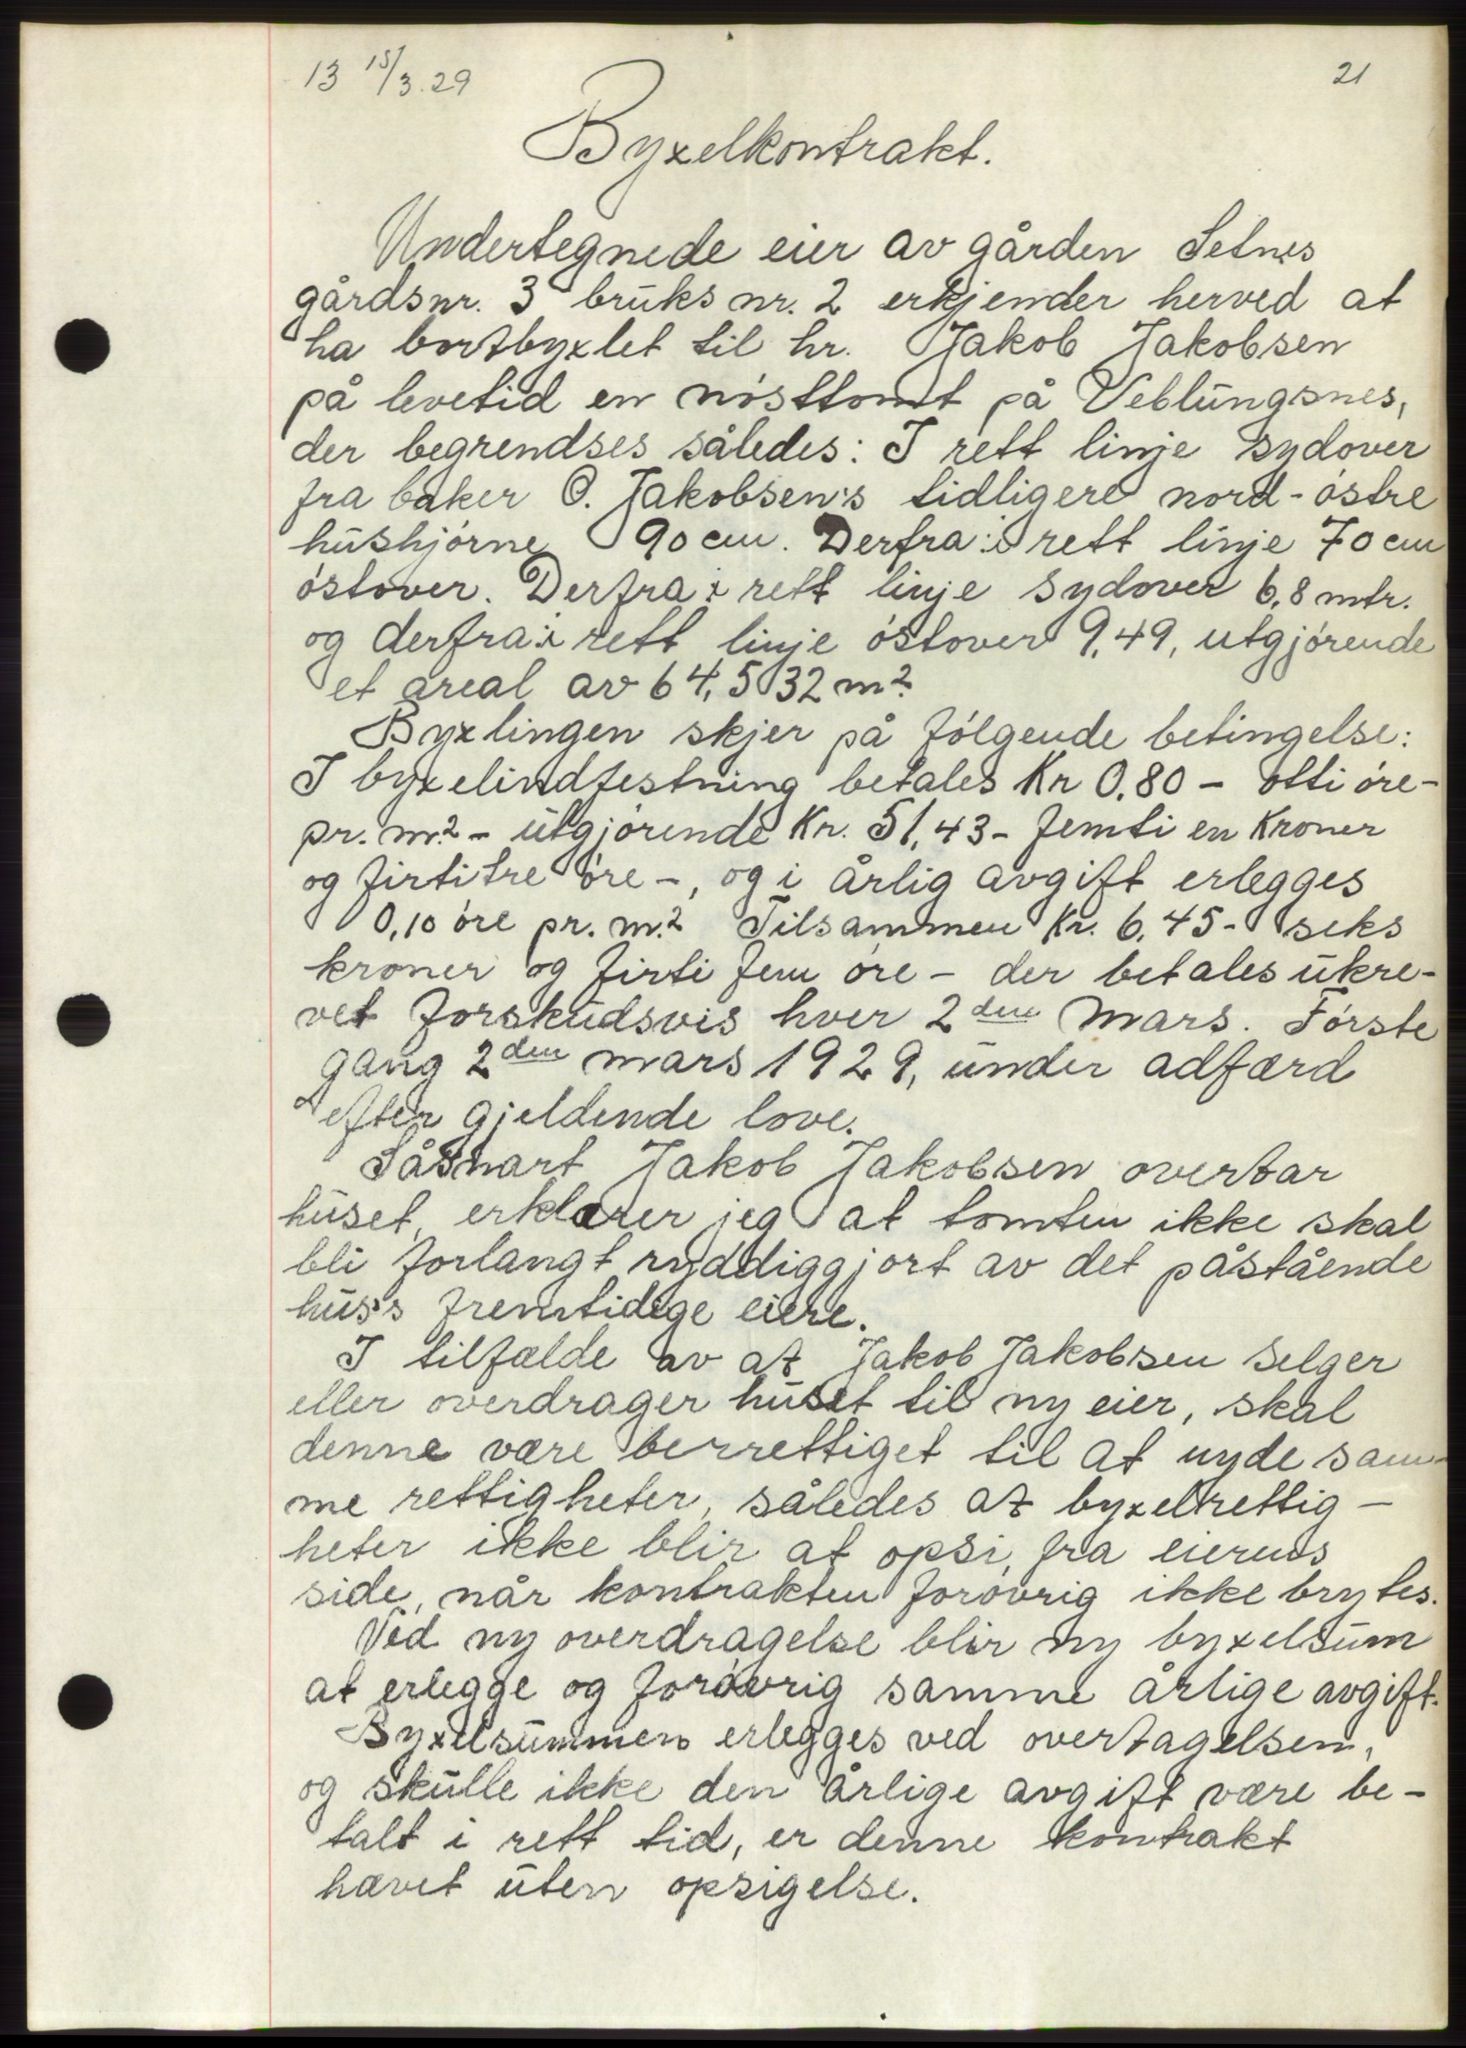 13 15/3.29
21
Byxelkontrakt.
Undertegnede eier av gården Setnes
gårdsnr. 3 bruksnr. 2 erkjender herved at
ha bortbyxlet til hr. Jakob Jakobsen
på levetid en nösttomt på Veblungsnes,
der begrendses således: I rett linje sydover
fra baker O. Jakobsen's tidligere nord-östre
hushjörne 90 cm. Derfra i rett linje 70 cm
östover. Derfra i rett linje sydover 6,8 mtr.
og derfra i rett linje östover 9,49, utgjörende
et areal av 64,532 m².
Byxlingen skjer på fölgende betingelse:
I byxelindfestning betales Kr 0.80 - otti öre-
pr. m² - utgjörende Kr. 51,43 - femti en Kroner
og firti tre öre -, og i årlig avgift erlegges
0,10 öre pr. m.² Tilsammen Kr. 6,45 - seks
kroner og firti fem öre - der betales ukre-
vet forskudsvis hver 2den mars. Förste
gang 2den mars 1929, under adfærd
efter gjeldende love.
Såsnart Jakob Jakobsen overtar
huset, erklærer jeg at tomten ikke skal
bli forlangt ryddiggjort av det påstående
hus's fremtidige eiere.
I tilfælde av at Jakob Jakobsen selger
eller overdrager huset til ny eier, skal
denne være berrettiget til at nyde sam-
me rettigheter, således at byxelrettig-
heter ikke blir at opsi, fra eierens
side, når kontrakten forövrig ikke brytes.
Ved ny overdragelse blir ny byxelsum
at erlegge og forövrig samme årlige avgift.
Byxelsummen erlegges ved overtagelsen,
og skulle ikke den årlige avgift være be-
talt i rett tid, er denne kontrakt
hævet uten opsigelse.